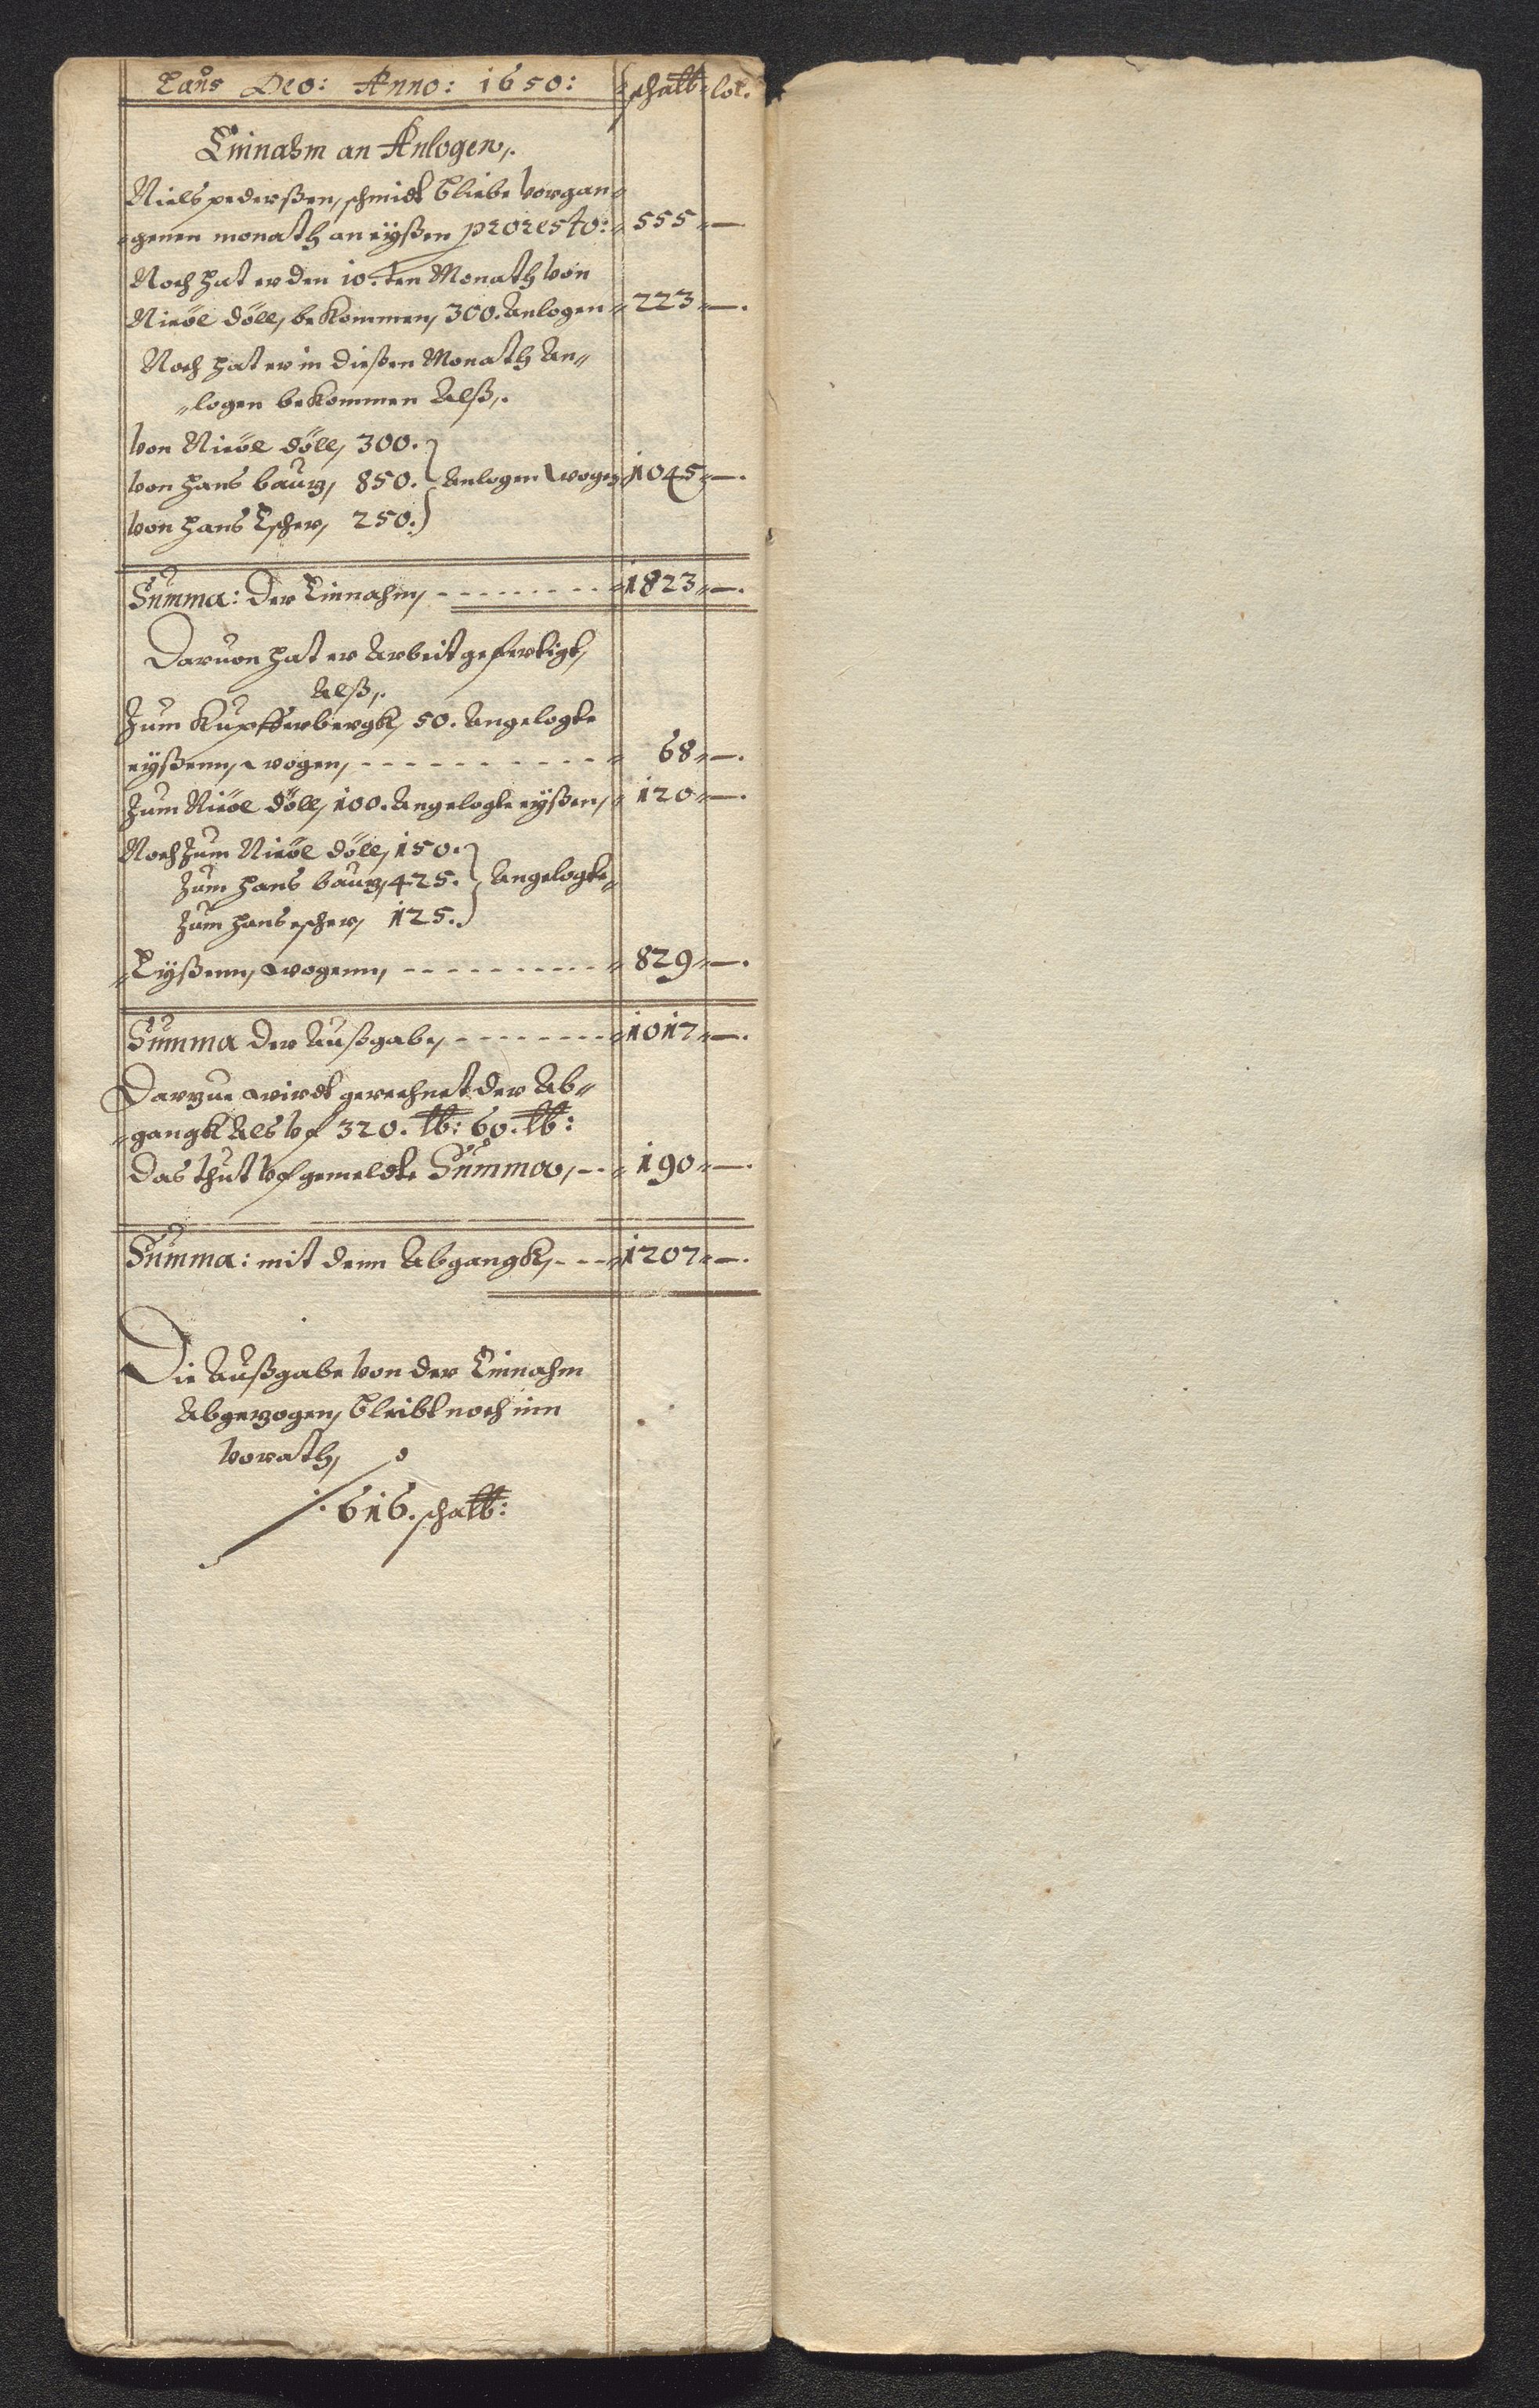 Laus Deo: Anno: 1650: schalb: lot.
Einnahm an Anlogen,.
Niels pederßen, schmidt bliebe vorgan-
-genen monath an eyßen pro resto: 555 -
Noch hat er den 10.ten Monath von
Nieöl döll, bekommen, 300. Anlogen 223 -.
Noch hat er in dießen Monath An-
-logen bekommen Alß,.
von Nieöl döll, 300.
von Hans baurz, 850. Anlogen wogen 1045 -.
von Hans Escher, 250.
Summa: der Einnahm, - - - - - - - - - 1823 -.
Daruon hat er Arbeit gefertigt,
Alß,.
Zum Kupfferbergk, 50. Angelogte
eyßenn, wogen, - - - - - - - - - - 68 -.
Zum Nieöl döll, 100. Angelogte eyßen, 120 -.
Noch Zum Nieöl döll, 150.
Zum Hans baurz, 425. Angelogte
Zum Hans escher, 125.
-Eyßenn, wogenn, - - - - - - - - - - 829 -.
Summa der Außgabe, - - - - - - - - 1017 -.
Darzue wirdt gerechnet der Ab-
-gangk Als vf 320. lb: 60. lb:
Das thut vf gemeldte Summa, - - 190 -.
Summa: mit dem Abgangk, - - - 1207 -.
Die Außgabe von der Einnahm
Abgezogen, bleibt noch inn
vorath,
/. 616. schalb: